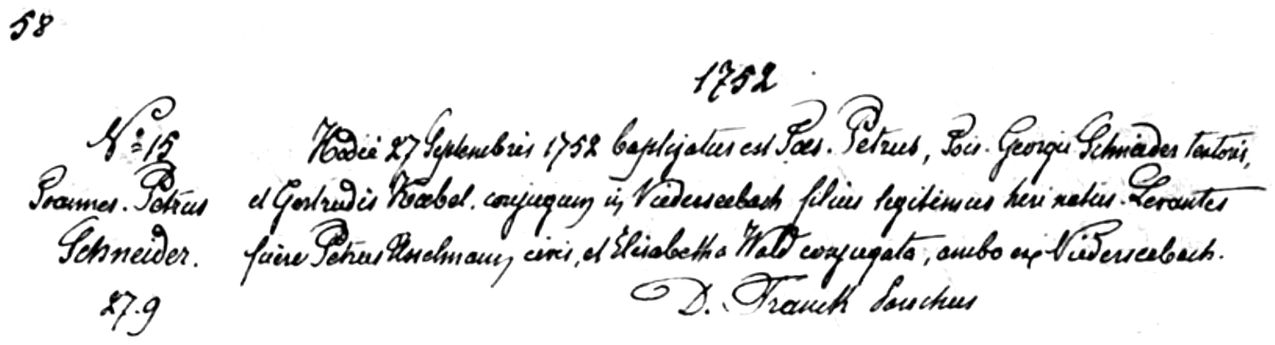 58
1752
Nº 15
Joannes. Petrus
Schneider.
27.9
Hodie 27 Septembris 1752 baptizatus est Joës. Petrus, Jois. Georgii Schneider textoris,
et Gertrudis Kœbel. conjugum in Niederseebach filius legitimus heri natus. Levantes
fuere Petrus civis, et Elisabetha Wald conjugata, ambo ex Niederseebach.
D. Franck